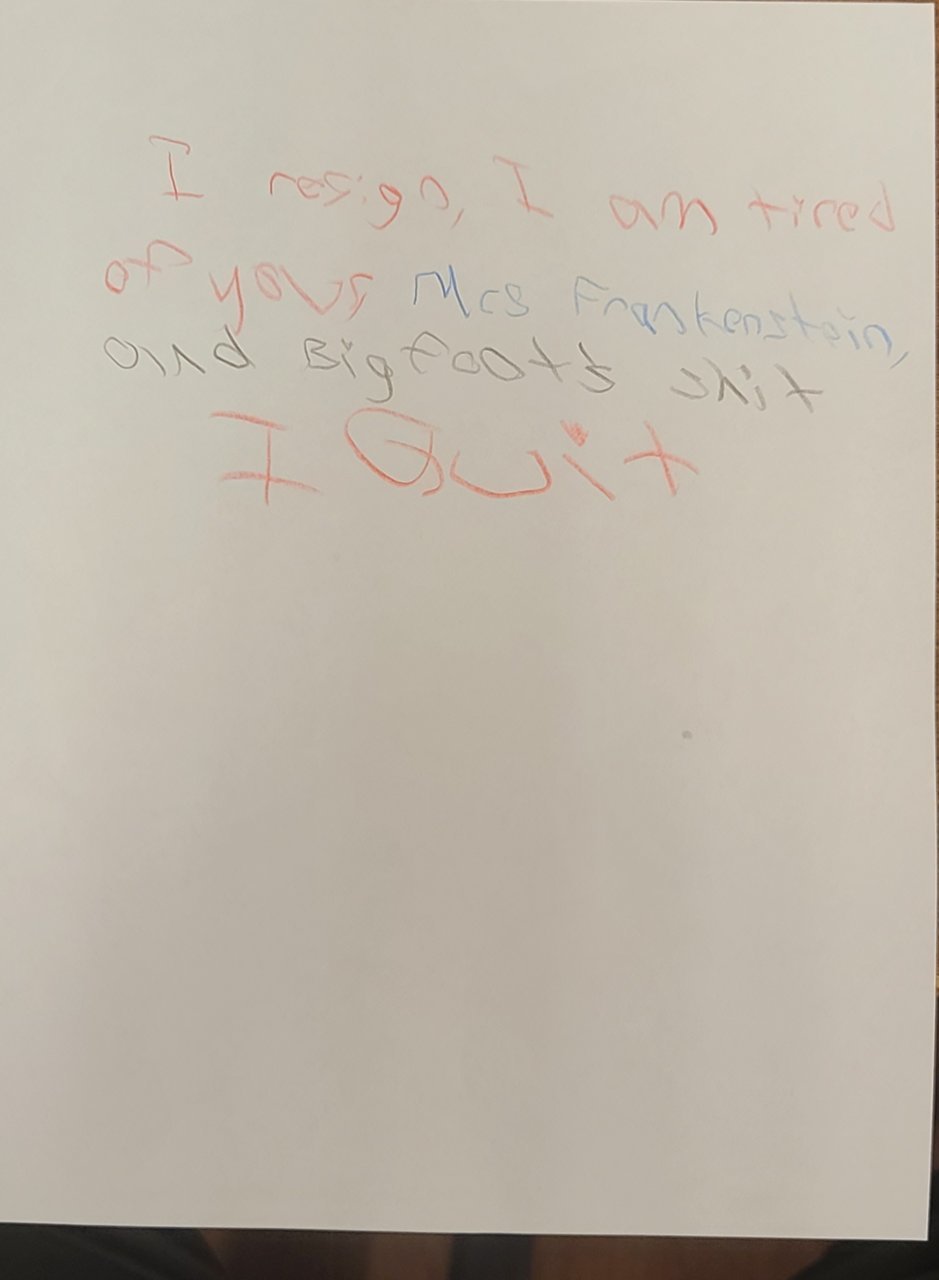 I resign, I am tired
of yours Mrs Frankenstein,
and Bigfoots shit
I Quit